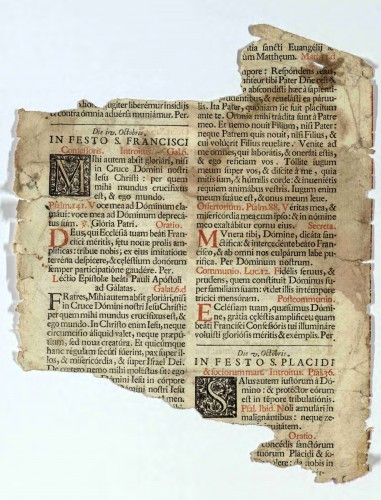 jugiter liberémur insidijs
contra omnia advérsa muniámur. Per.
Die iv. Octobris.
IN FESTO S. FRANCISCI
Confessoris. Introitus. Gal. 6.
MIhi autem absit gloriári, nisi
in Cruce Domini nostri
Jesu Christi: per quem
mihi mundus crucifixus
est, & ego mundo.
Psalm. 141. Voce mea ad Dóminum cla-
mávi: voce mea ad Dóminum deprecá-
tus sum. ℣. Glória Patri. Oratio.
DEus, qui Ecclésiam tuam beáti Fran-
císci méritis, fœtu novæ prolis am-
plíficas: tríbue nobis; ex ejus imitatióne
terréna despícere, & cœléstium donórum
semper participatióne gaudére. Per.
Léctio Epístolæ beáti Pauli Apóstoli
ad Gálatas. Galat. 6. d
FRatres, Mihi autem absit gloriári, nisi
in Cruce Dómini nostri Jesu Christi:
per quem mihi mundus crucifíxus est, &
ego mundo. In Christo enim Jesu, neque
circumcísio áliquid valet, neque præpú-
tium, sed nova creatúra. Et quicúmque
hanc régulam secúti fúerint, pax super il-
los, & misericórdia, & super Israel Dei.
De cætero nemo mihi moléstus sit: ego
Dómini Jesu in córpore
Dómini nostri Jesu
sancti Evangélij
um Matthǽum.
pore: Respóndens
fíteor tibi Pater Dñe cœli &
abscondísti hæc à sapiénti-
prudéntibus, & revelásti ea párvu-
lis. Ita Pater, quóniam sic fuit plácitum
ante te. Omnia mihi trádita sunt à Patre
meo. Et nemo novit Fílium, nisi Pater:
neque Patrem quis novit, nisi Fílius, &
cui volúerit Fílius reveláre. Veníte ad
me omnes, qui laborátis, & oneráti estis,
& ego refíciam vos. Tóllite jugum
meum super vos, & díscite à me, quia
mitis sum, & húmilis corde: & inveniétis
réquiem animábus vestris. Jugum enim
meum suáve est, & onus meum leve.
Offertorium. Psalm. 88. Véritas mea, &
misericórdia mea cum ipso: & in nómine
meo exaltábitur cornu ejus. Secreta.
MUnera tibi, Dómine, dicáta san-
ctífica: & intercedénte beáto Fran-
císco, & ab omni nos culpárum labe pu-
rífica. Per Dóminum nostrum.
Communio. Luc. 12. Fidélis servus, &
prudens, quem constítuit Dóminus su-
per famíliam suam: ut det illis in témpore
trítici mensúram. Postcommunio.
ECclésiam tuam, quǽsumus, Dómi-
ne, grátia cœléstis amplíficet: quam
beáti Francísci Confessóris tui illumináre
voluísti gloriósis méritis & exémplis. Per.
Die v. Octobris.
IN FESTO S. PLACIDI
& sociorum mart. Introitus. Psal. 36.
SAlus autem justórum à Dó-
mino: & protéctor eórum
est in tépore tribulatiónis.
Psal. Ibid. Noli æmulári in
malignántibus: neque ze-
Oratio.
concédis sanctórum
tuórum Plácidi & so-
cólere: da nobis in